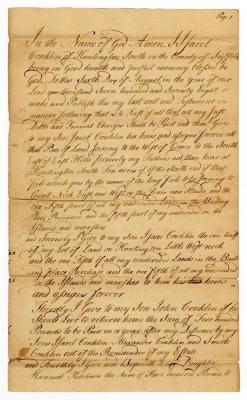 Page 1
In the Name of God Amen. I Isrel
Conklin of Huntington South in the County of Suffolk
being in Good health and perfect memory blessed be
God. Do this Sixth Day of August in the year of our
Lord one thousand Seven hundred and Seventy Eight
make and Publish this my last will and Testament in
manner following that is to Say first of all that all my Just
Debts and funeral Charges Shall be Paid and then I give
to my Son Isrel Conklin his heirs and assigns forever all
that Piece of Land joining to the West of Grace to the South
East of East Hills formerly my Fathers and that lies at
Huntington South Ten acres of the South end of that
field which goes by the name of the long Joining to
Great Neck
one Fifth part of all my undivided Lands in the Baiting
Place Purchase and the fifth part of my undivided on the
Islands and marshes
and Secondly I Give to my Son Isaac Conklin the one half
of my lot of Land in Huntington Little West neck
and the one Fifth of all my undivided Lands in the Baiting
Place Purchase and the one Fifth of all my undivided
in the Islands and marshes to him his heirs
and assigns forever
Thirdly I Give to my Son John Conklin if he
Should Live to return home the Sum of Five hundred
Pounds to be Paid in a year after my Decease by my
Sons Isrel Conklin Alexander Conklin and Smith
Conklin out of the Remainder of my Estate
and Fourthly I give and Bequeath to my Daughter
Hannah Ketcham the Sum of three hundred Pounds to